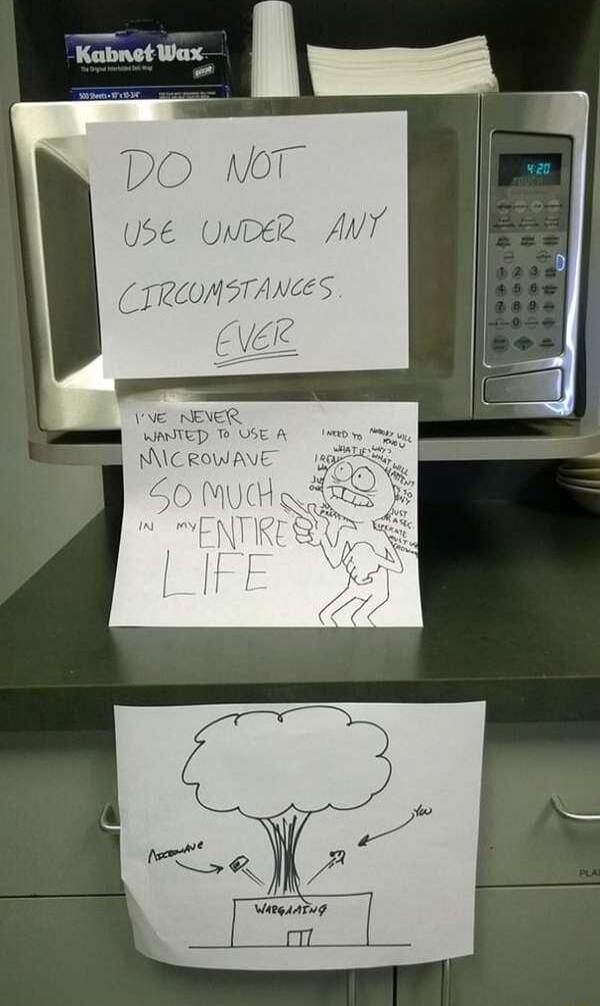 Kabnet Wax
The Original Interfolded Deli Wrap
500 Sheets • 10" x 10-3/4"
4:20
DO NOT
USE UNDER ANY
CIRCUMSTANCES.
EVER
1 2 3
4 5 6
7 8 9
0
I'VE NEVER
WANTED TO USE A
MICROWAVE
SO MUCH
IN MY ENTIRE
LIFE
I NEED TO
NOBODY WILL
KNOW
WHAT IF
WHY?
WHAT WILL
HAPPEN?
JUST
A SEC
YOU
MICROWAVE
WARGAMING
PLA